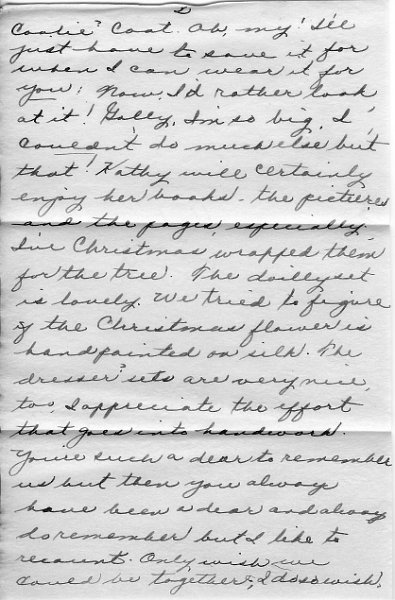 2
Coolie" Coat. Oh, my! I'll
just have to save it for
when I can wear it for
you; Now, I'd rather look
at it! Golly, I'm so big, I
couldn't do much else but
that! Kathy will certainly
enjoy her books - the pictures
and the pages, especially.
I've Christmas wrapped them
for the tree. The doilly set
is lovely. We tried to figure
if the Christmas flower is
handpainted on silk. The
dresser sets are very nice,
too, I appreciate the effort
that goes into handwork.
You're such a dear to remember
us but then you always
have been a dear and always
do remember but I like to
recount. Only wish we
could be together, I do so wish.